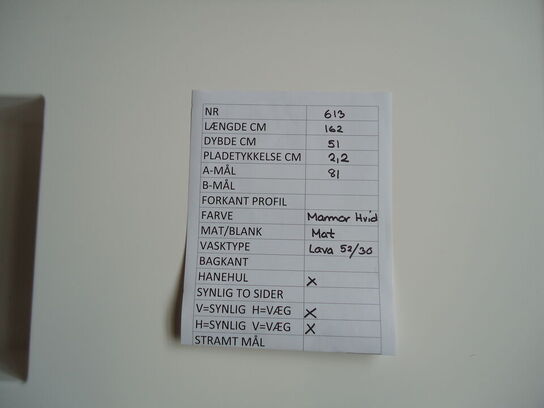 NR 613
LÆNGDE CM 162
DYBDE CM 51
PLADETYKKELSE CM 2,2
A-MÅL 81
B-MÅL
FORKANT PROFIL
FARVE Marmor Hvid
MAT/BLANK Mat
VASKTYPE Lava 52/30
BAGKANT
HANEHUL X
SYNLIG TO SIDER
V=SYNLIG H=VÆG X
H=SYNLIG V=VÆG X
STRAMT MÅL